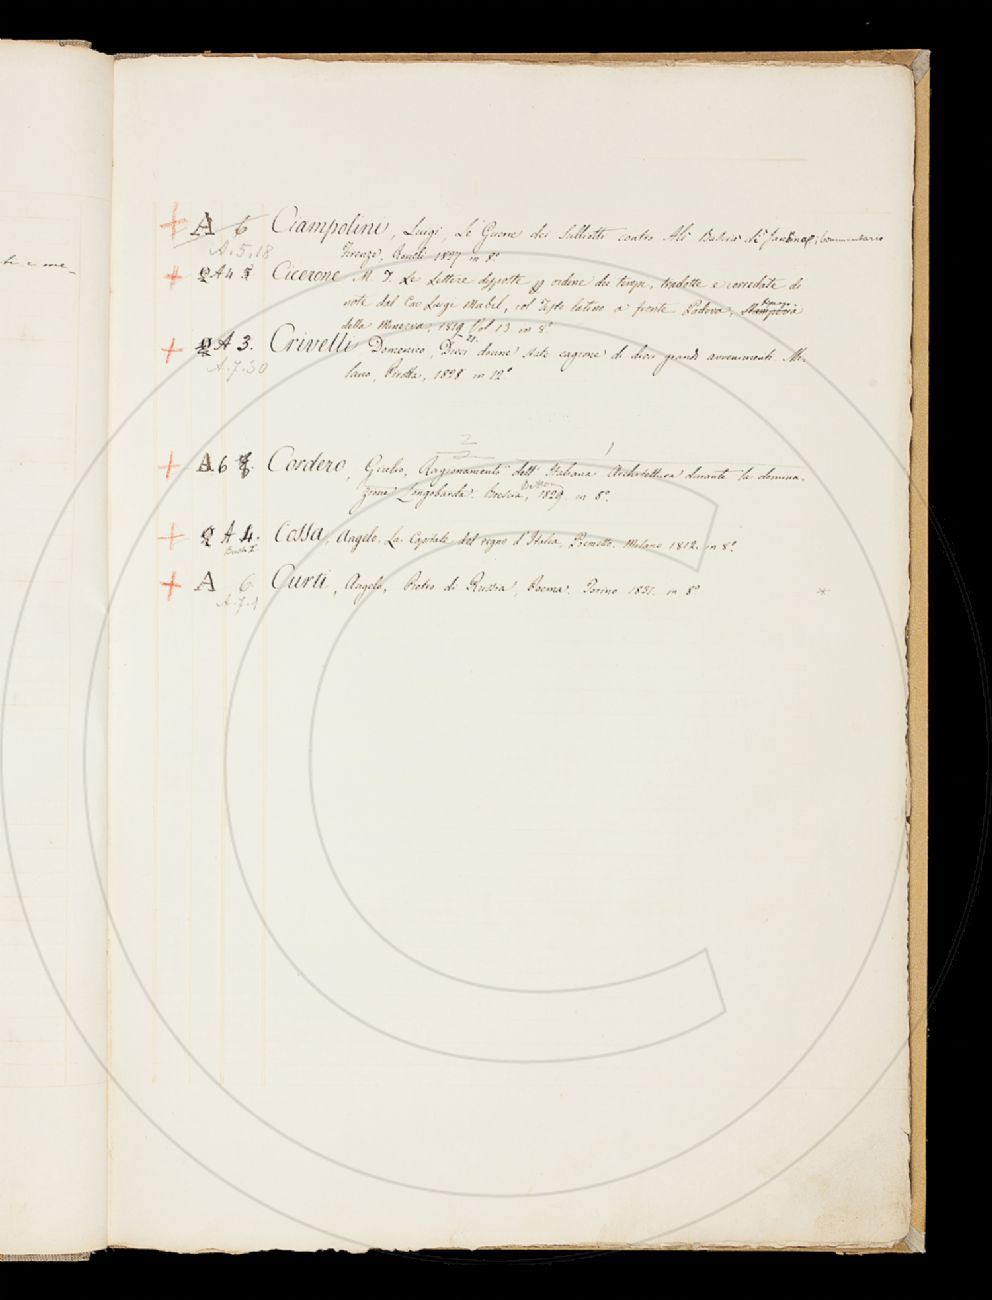 + A 6 Ciampolini, Luigi, Le Guerre dei Sulliotti contro Alì Bascià di Janina, Commentario
A.5.18 Firenze, 1827 in 8°
+ A 4 Cicerone M. T. Le Lettere disposte ordine dei tempi, tradotte e corredate di
note dal Cav Luigi Mabil, col Testo latino a fronte Padova, Stamperia
della Minerva, 1819 Vol 13 in 8°
21.
+ A 3. Crivelli Domenico, Dieci donne state cagione di dieci grandi avvenimenti. Mi-
A.7.30 lano, Pirotta, 1828 in 12°
2 1
+ A 6 Cordero, Giulio, Ragionamento dell' Italiana Architettura durante la domina-
zione Longobarda. Brescia, Bettoni, 1829. in 8°.
+ A 4. Cossa, Angelo. La Capitale del regno d'Italia, Poemetto. Milano 1812. in 8°.
+ A 6. Curti, Angelo, Pietro di Russia, Poema. Torino 1831. in 8°
A.7.